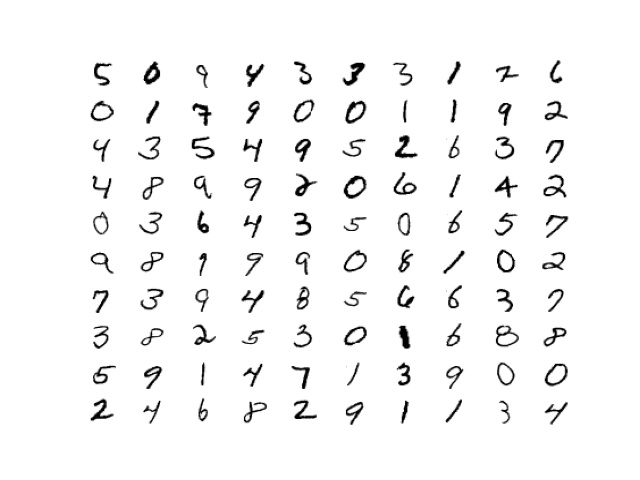 5 0 9 4 3 3 3 1 2 6
0 1 7 9 0 0 1 1 9 2
4 3 5 4 9 5 2 6 3 7
4 8 9 9 2 0 6 1 4 2
0 3 6 4 3 5 0 6 5 7
9 8 1 9 9 0 8 1 0 2
7 3 9 4 8 5 6 6 3 7
3 8 2 5 3 0 1 6 8 8
5 9 1 4 7 1 3 9 0 0
2 4 6 8 2 9 1 1 3 4